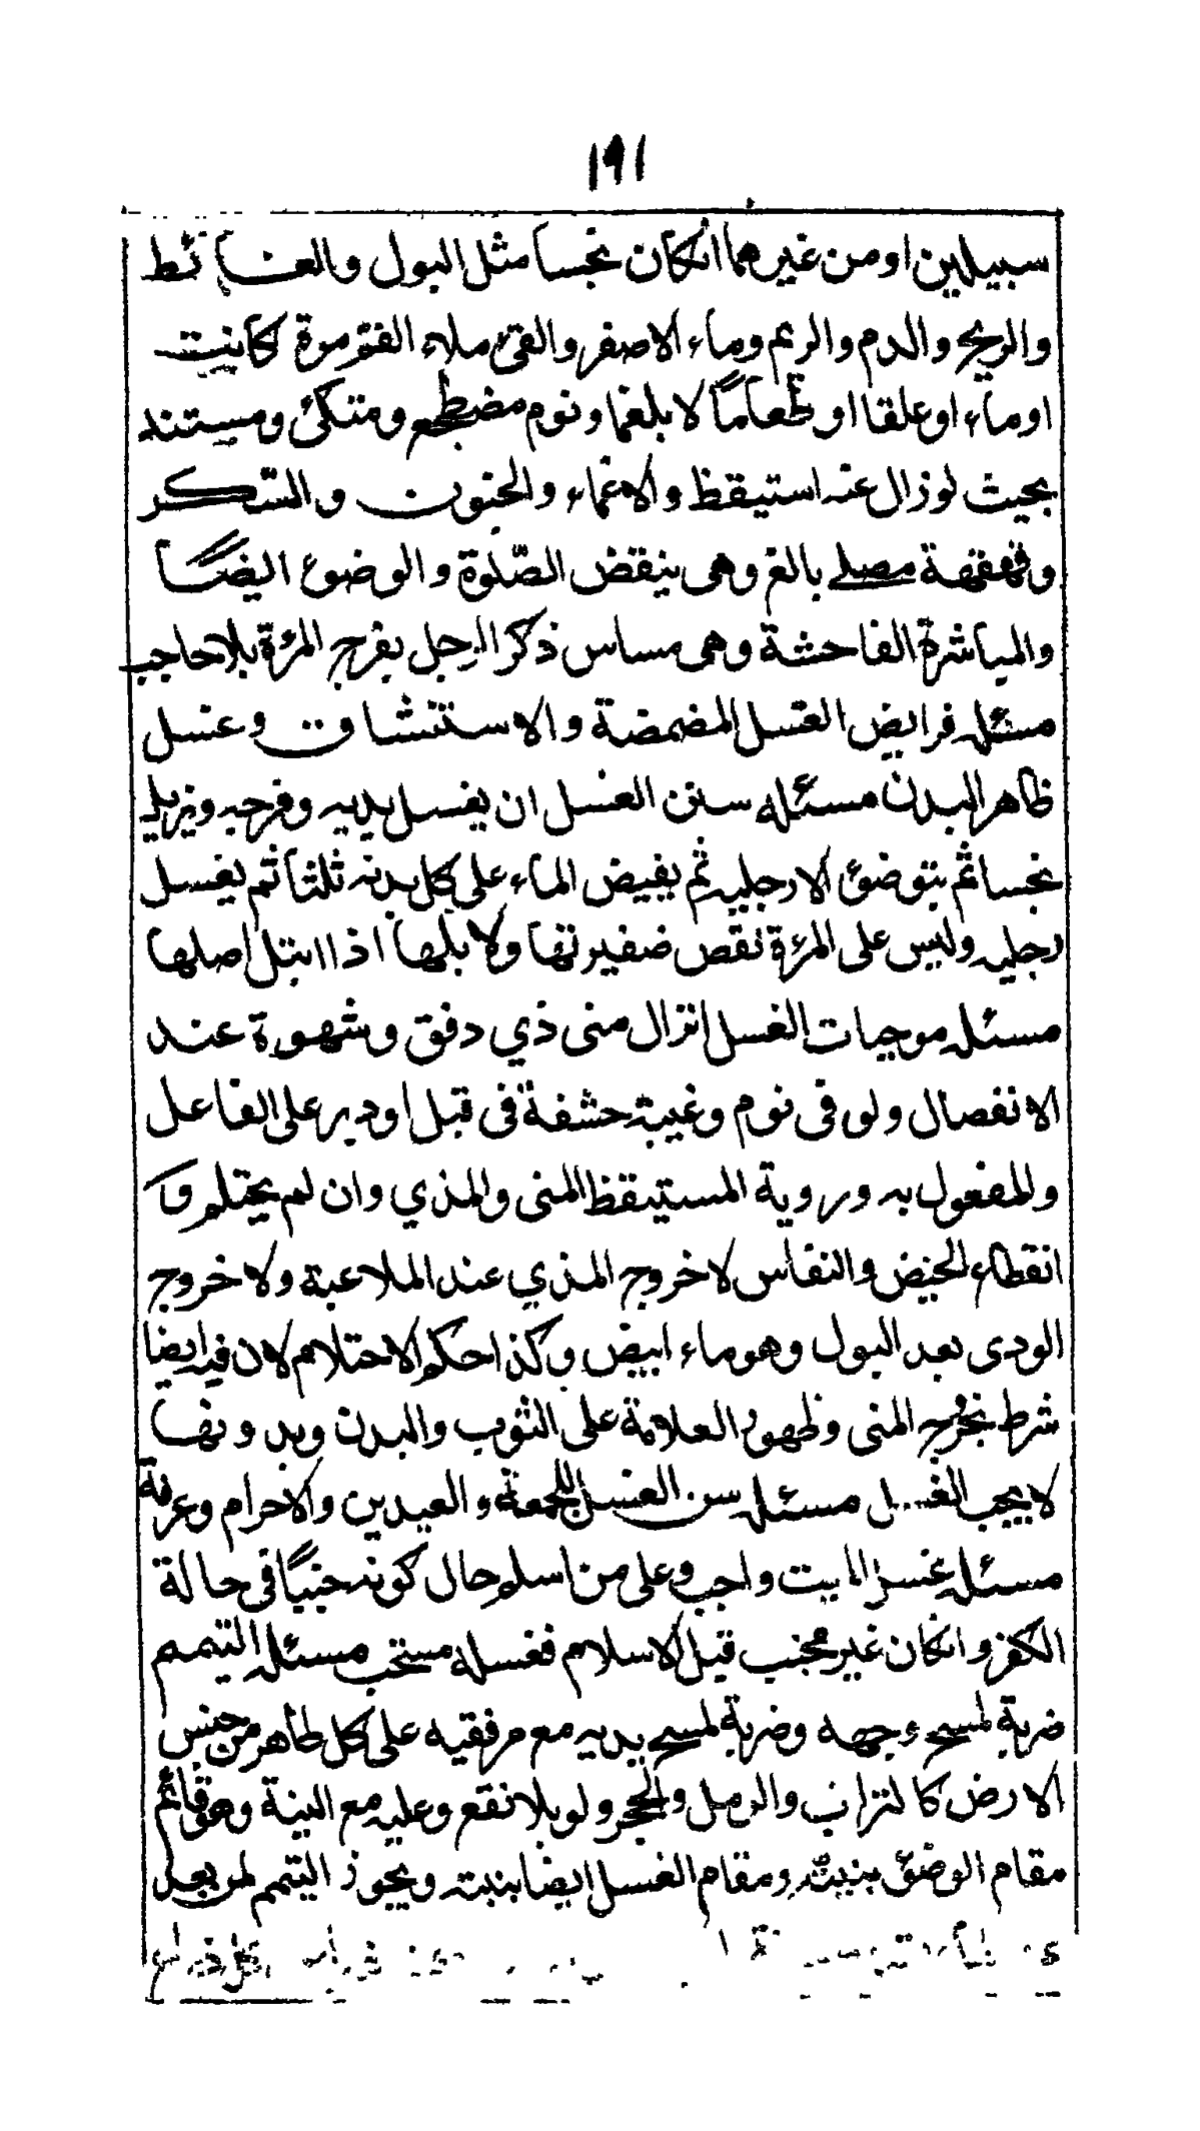 ١٩١
سبيلين او من غيرهما انكان نجسا مثل البول والغائط
والريح والدم والريم وماء الاصفر والقئ ملاء الفم مرة كانت
او ماء او علقا او طعاماً لا بلغما ونوم مضطجع ومتكئ ومستند
بحيث لو زال عنه استيقظ والاغماء والجنون والسّكر
وقهقهة مصلے بالغ وهى ينقض الصّلوة والوضوء ايضًا
والمباشرة الفاحشة وهى مساس ذكر الرجل بفرج المرءة بلا حاجب
مسئله فرايض الغسل المضمضة والاستنشاق وغسل
ظاهر البدن مسئله سنن الغسل ان يغسل يديه وفرجه ويزيل
نجسا ثم يتوضئ الا رجليه ثم يفيض الماء على كل بدنه ثلثا ثم يغسل
رجليه وليس على المرءة نقص ضفيرتها ولا بلها اذا ابتل اصلها
مسئله موجبات الغسل انزال منى ذي دفق وشهوة عند
الانفصال ولو فى نوم وغيبة حشفة فى قبل او دبر على الفاعل
والمفعول به وروية المستيقظ المنى والمذي وان لم يحتلم و
انقطاء الحيض والنفاس لا خروج المذي عند الملاعبة ولا خروج
الودى بعد البول وهو ماء ابيض وكذا حكم الاحتلام لان فيه ايضا
شرط بخروج المنى وظهور العلامة على الثوب والبدن وبدونها
لا يجب الغسل مسئله سن الغسل للجمعة والعيدين والاحرام وعرفة
مسئله غسل الميت واجب وعلى من اسلم حال كونه جنبًا فى حالة
الكفر وانكان غير مجنب قبل الاسلام فغسله مستحب مسئله التيمم
ضربة لمسح وجهه وضربة لمسح يديه مع مرفقيه على كل طاهر من جنس
الارض كالتراب والرمل والحجر ولو بلا نقع وعليه مع النية وهو قائم
مقام الوضئ بنيته ومقام الغسل ايضا بنيته ويجوز التيمم لمن بعد